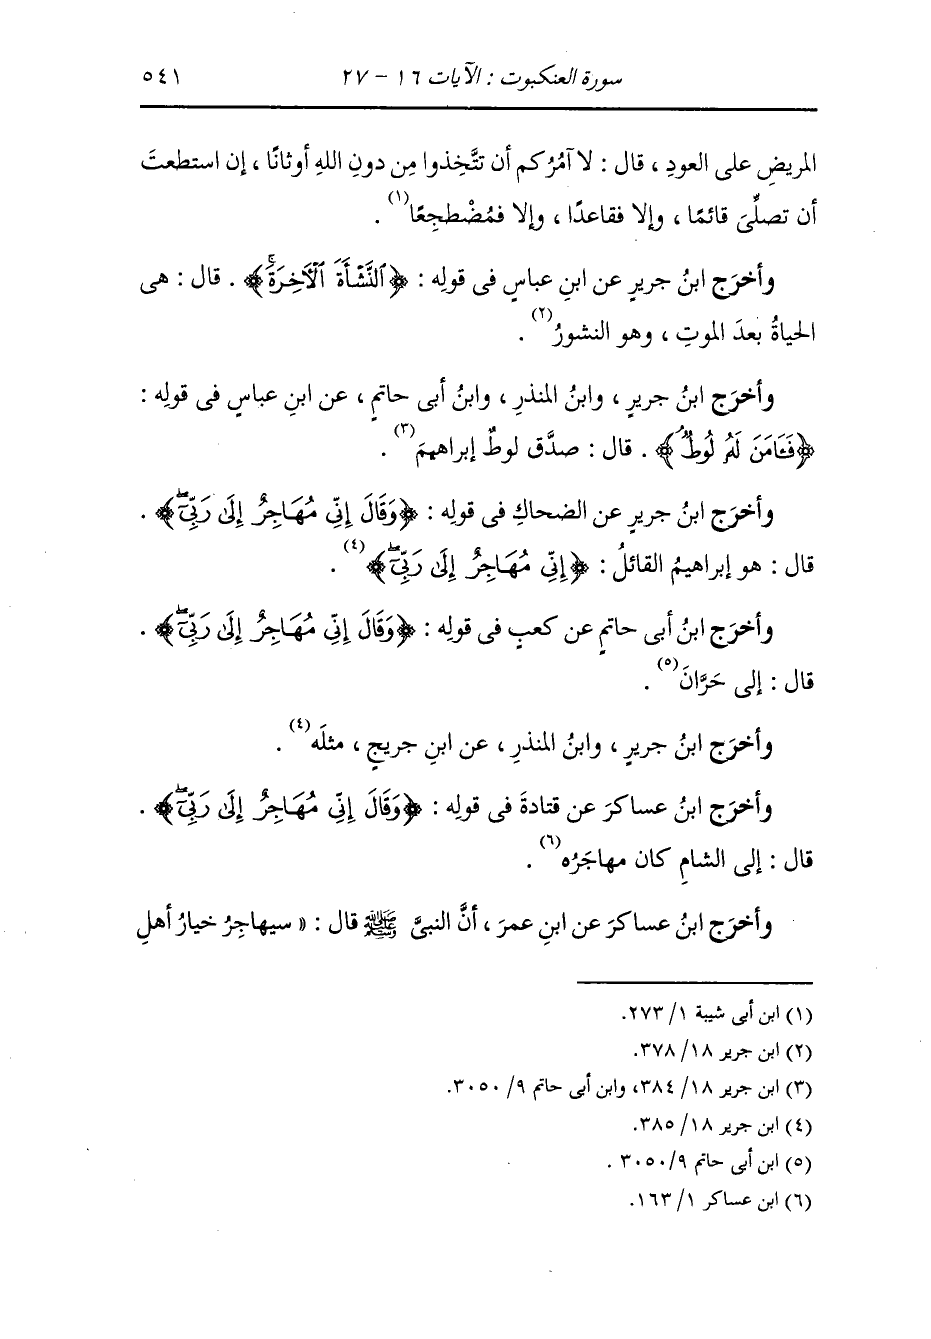 سورة العنكبوت : الآيات ١٦ - ٢٧ ٥٤١
المريضِ على العودِ ، قال : لا آمُرُكم أن تتَّخِذوا مِن دونِ اللهِ أوثانًا ، إن استطعتَ
أن تصلِّىَ قائمًا ، وإلا فقاعدًا ، وإلا فمُضْطجِعًا(١) .
وأخرَج ابنُ جريرٍ عن ابنِ عباسٍ فى قولِه : ﴿ٱلنَّشْأَةَ ٱلْآخِرَةَۚ﴾ . قال : هى
الحياةُ بعدَ الموتِ ، وهو النشورُ(٢) .
وأخرَج ابنُ جريرٍ ، وابنُ المنذرِ ، وابنُ أبى حاتمٍ ، عن ابنِ عباسٍ فى قولِه :
﴿فَـَٔامَنَ لَهُۥ لُوطٌۘ﴾ . قال : صدَّق لوطٌ إبراهيمَ(٣) .
وأخرَج ابنُ جريرٍ عن الضحاكِ فى قولِه : ﴿وَقَالَ إِنِّى مُهَاجِرٌ إِلَىٰ رَبِّىٓۖ﴾ .
قال : هو إبراهيمُ القائلُ : ﴿إِنِّى مُهَاجِرٌ إِلَىٰ رَبِّىٓۖ﴾(٤) .
وأخرَج ابنُ أبى حاتمٍ عن كعبٍ فى قولِه : ﴿وَقَالَ إِنِّى مُهَاجِرٌ إِلَىٰ رَبِّىٓۖ﴾ .
قال : إلى حَرَّانَ(٥) .
وأخرَج ابنُ جريرٍ ، وابنُ المنذرِ ، عن ابنِ جريجٍ ، مثلَه(٤) .
وأخرَج ابنُ عساكرَ عن قتادةَ فى قولِه : ﴿وَقَالَ إِنِّى مُهَاجِرٌ إِلَىٰ رَبِّىٓۖ﴾ .
قال : إلى الشامِ كان مهاجَرُه(٦) .
وأخرَج ابنُ عساكرَ عن ابنِ عمرَ ، أنَّ النبىَّ ﷺ قال : « سيهاجِرُ خيارُ أهلِ
(١) ابن أبى شيبة ١/ ٢٧٣.
(٢) ابن جرير ١٨/ ٣٧٨.
(٣) ابن جرير ١٨/ ٣٨٤، وابن أبى حاتم ٩/ ٣٠٥٠.
(٤) ابن جرير ١٨/ ٣٨٥.
(٥) ابن أبى حاتم ٩/ ٣٠٥٠ .
(٦) ابن عساكر ١/ ١٦٣.